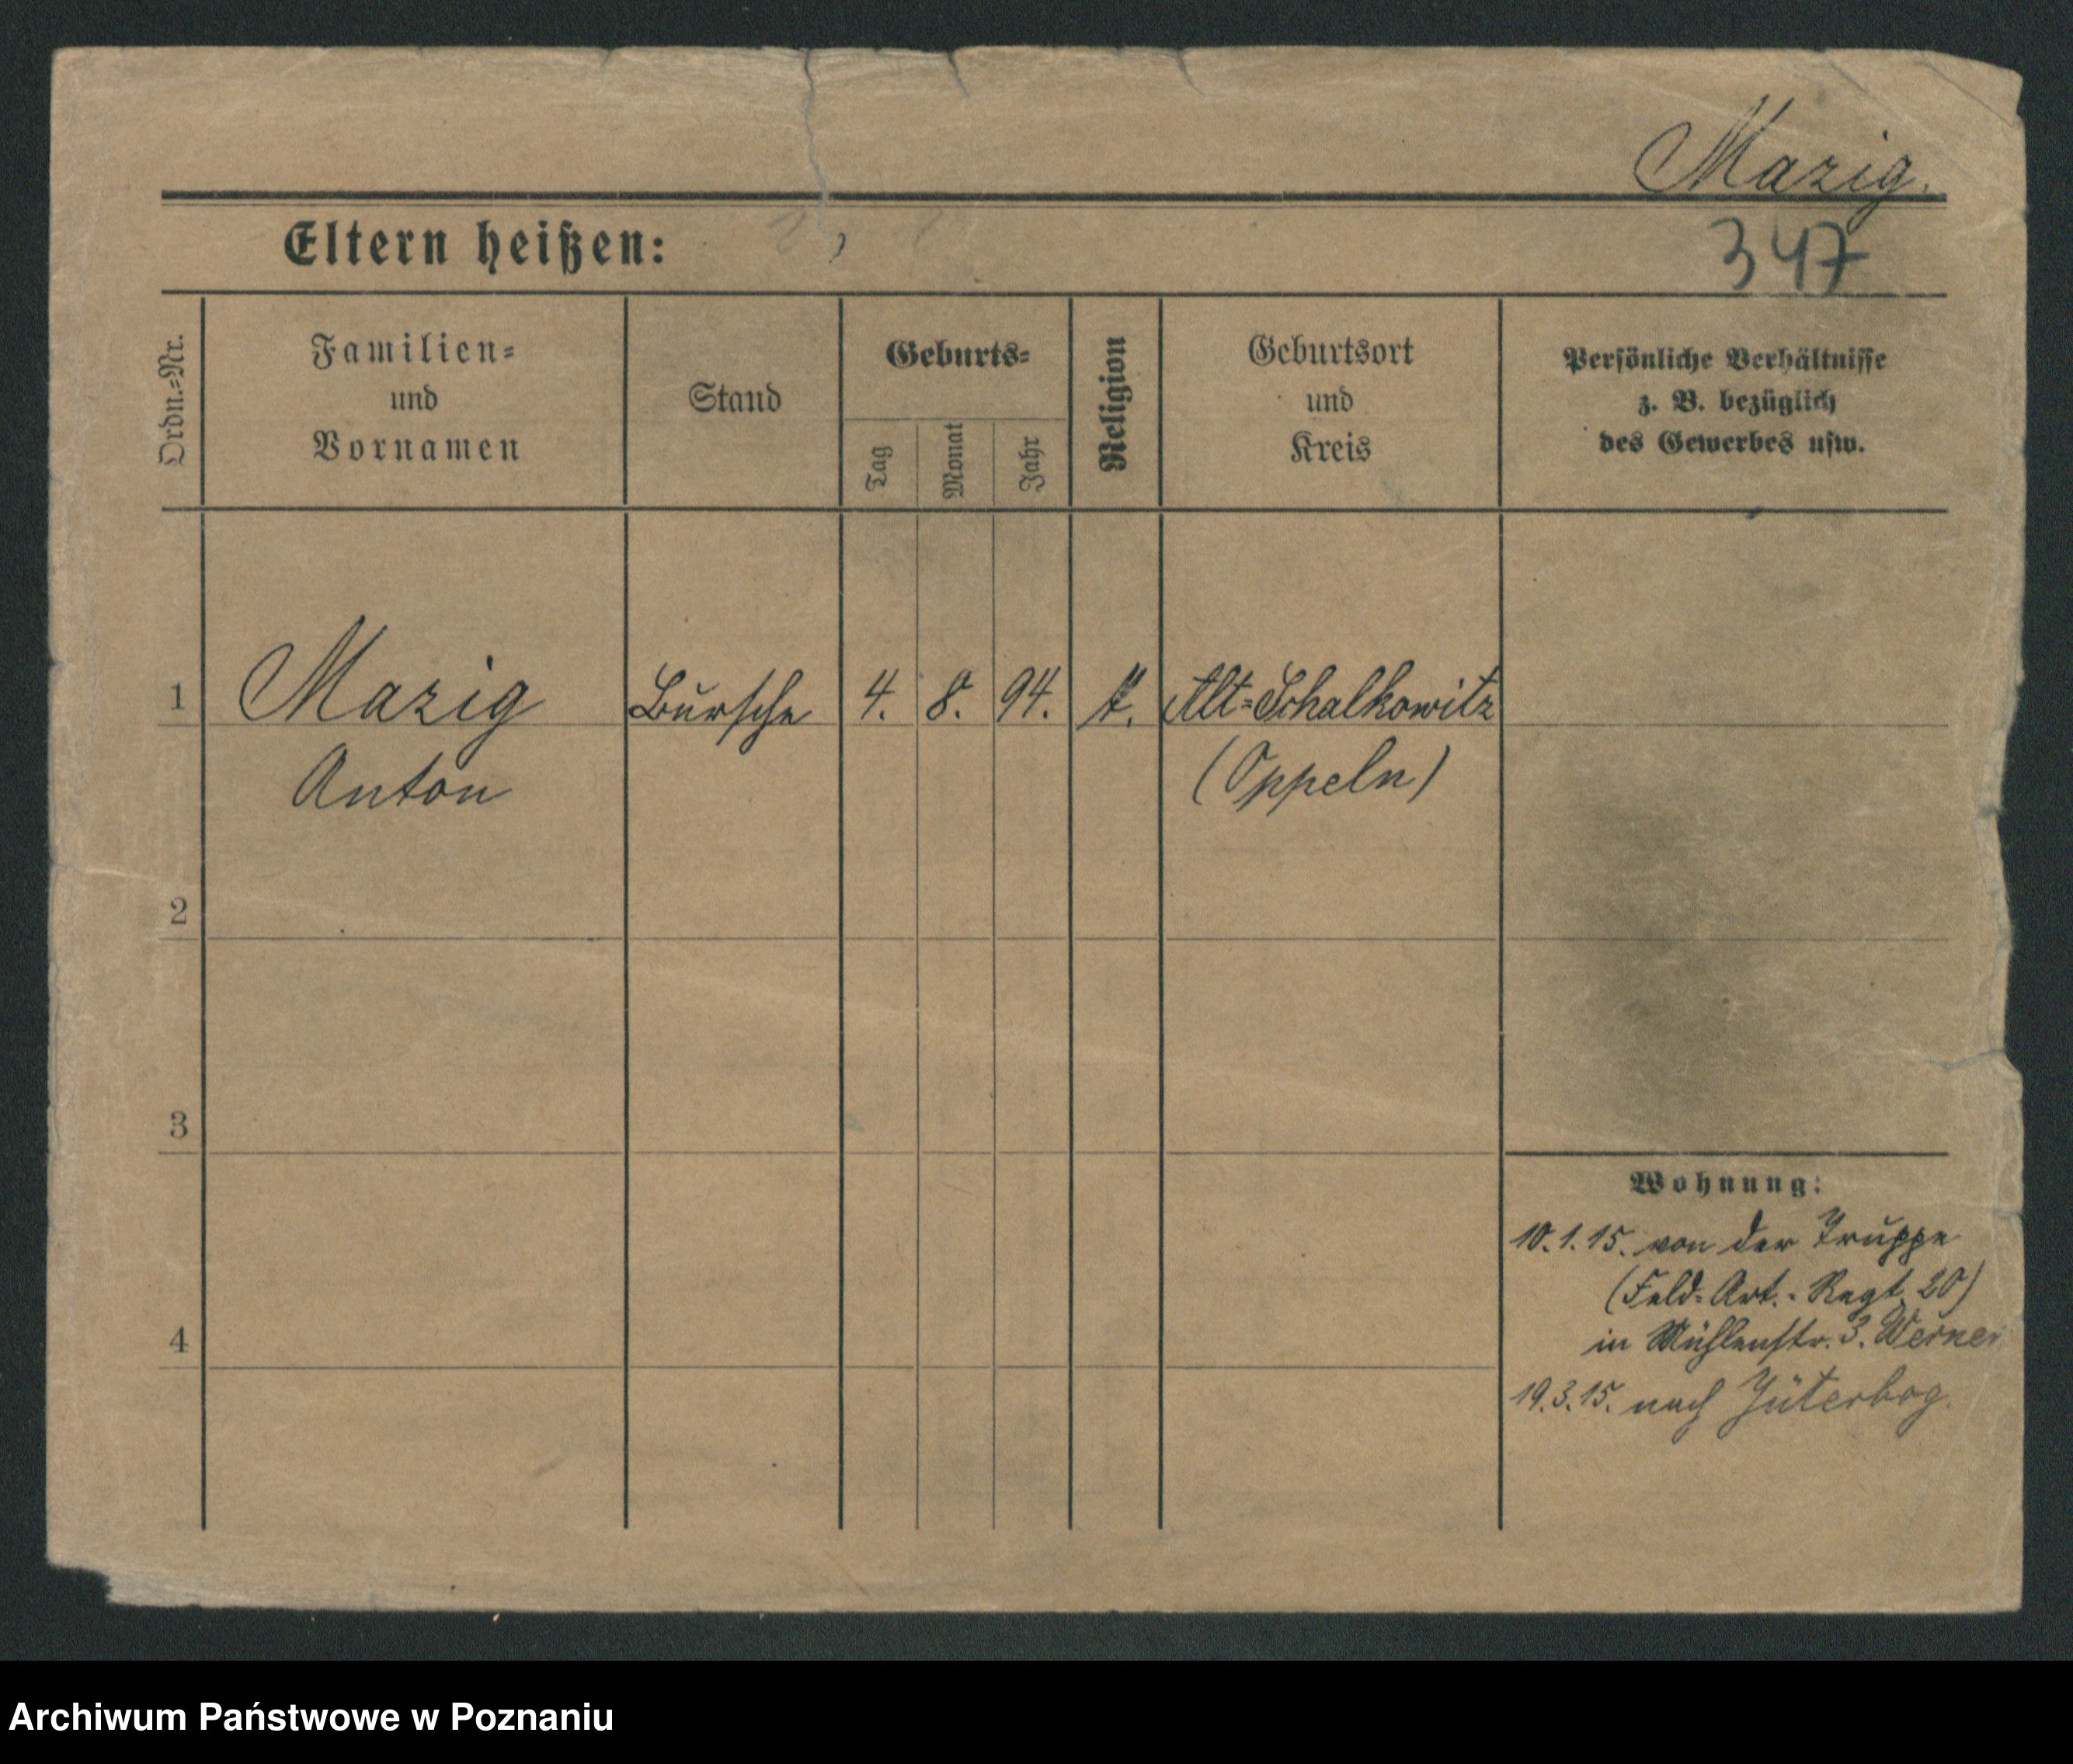 Mazig.
Eltern heißen:
347
Ordn.-Nr.
Familien-
und
Vornamen
Stand
Geburts-
Tag
Monat
Jahr
Religion
Geburtsort
und
Kreis
Persönliche Verhältnisse
z. B. bezüglich
des Gewerbes usw.
1 Mazig Bursche 4. 8. 94. Alt-Schalkowitz
Anton (Oppeln)
2
3
Wohnung:
10.1.15. von der Truppe
(Feld-Art.-Regt. 20)
4
in Mühlenstr. 3. Werner
19.3.15. nach Jüterbog.
Archiwum Państwowe w Poznaniu